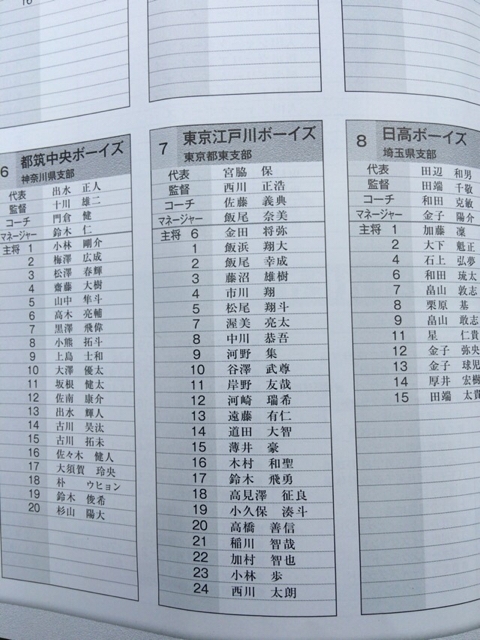 16
6 都筑中央ボーイズ
神奈川県支部
代表 出水 正人
監督 十川 雄二
コーチ 門倉 健
マネージャー 鈴木 仁
主将 1 小林 剛介
2 梅澤 広成
3 松澤 春輝
4 齋藤 大樹
5 山中 隼斗
6 高木 亮輔
7 黒澤 飛偉
8 小熊 拓斗
9 上島 士和
10 大澤 優太
11 坂根 健太
12 佐南 康介
13 出水 輝人
14 古川 昊汰
15 古川 拓未
16 佐々木 健人
17 大須賀 玲央
18 朴 ウヒョン
19 鈴木 俊希
20 杉山 陽大
7 東京江戸川ボーイズ
東京都東支部
代表 宮脇 保
監督 西川 正浩
コーチ 佐藤 義典
マネージャー 飯尾 奈美
主将 6 金田 将弥
1 飯浜 翔大
2 飯尾 幸成
3 藤沼 雄樹
4 市川 翔
5 松尾 翔斗
7 渥美 亮太
8 中川 恭吾
9 河野 集
10 谷澤 武尊
11 岸野 友哉
12 河崎 瑞希
13 遠藤 有仁
14 道田 大智
15 薄井 豪
16 木村 和聖
17 鈴木 飛勇
18 高見澤 征良
19 小久保 湊斗
20 高橋 善信
21 稲川 智哉
22 加村 智也
23 小林 歩
24 西川 太朗
8 日高ボーイズ
埼玉県支部
代表 田辺 和男
監督 田端 千敬
コーチ 和田 克敏
マネージャー 金子 陽介
主将 1 加藤 凜
2 大下 魁正
4 石上 弘夢
6 和田 琉太
7 畠山 敦志
8 栗原 基
9 畠山 敢志
11 星 仁貴
12 金子 弥央
13 金子 球児
14 厚井 宏樹
15 田端 太貴